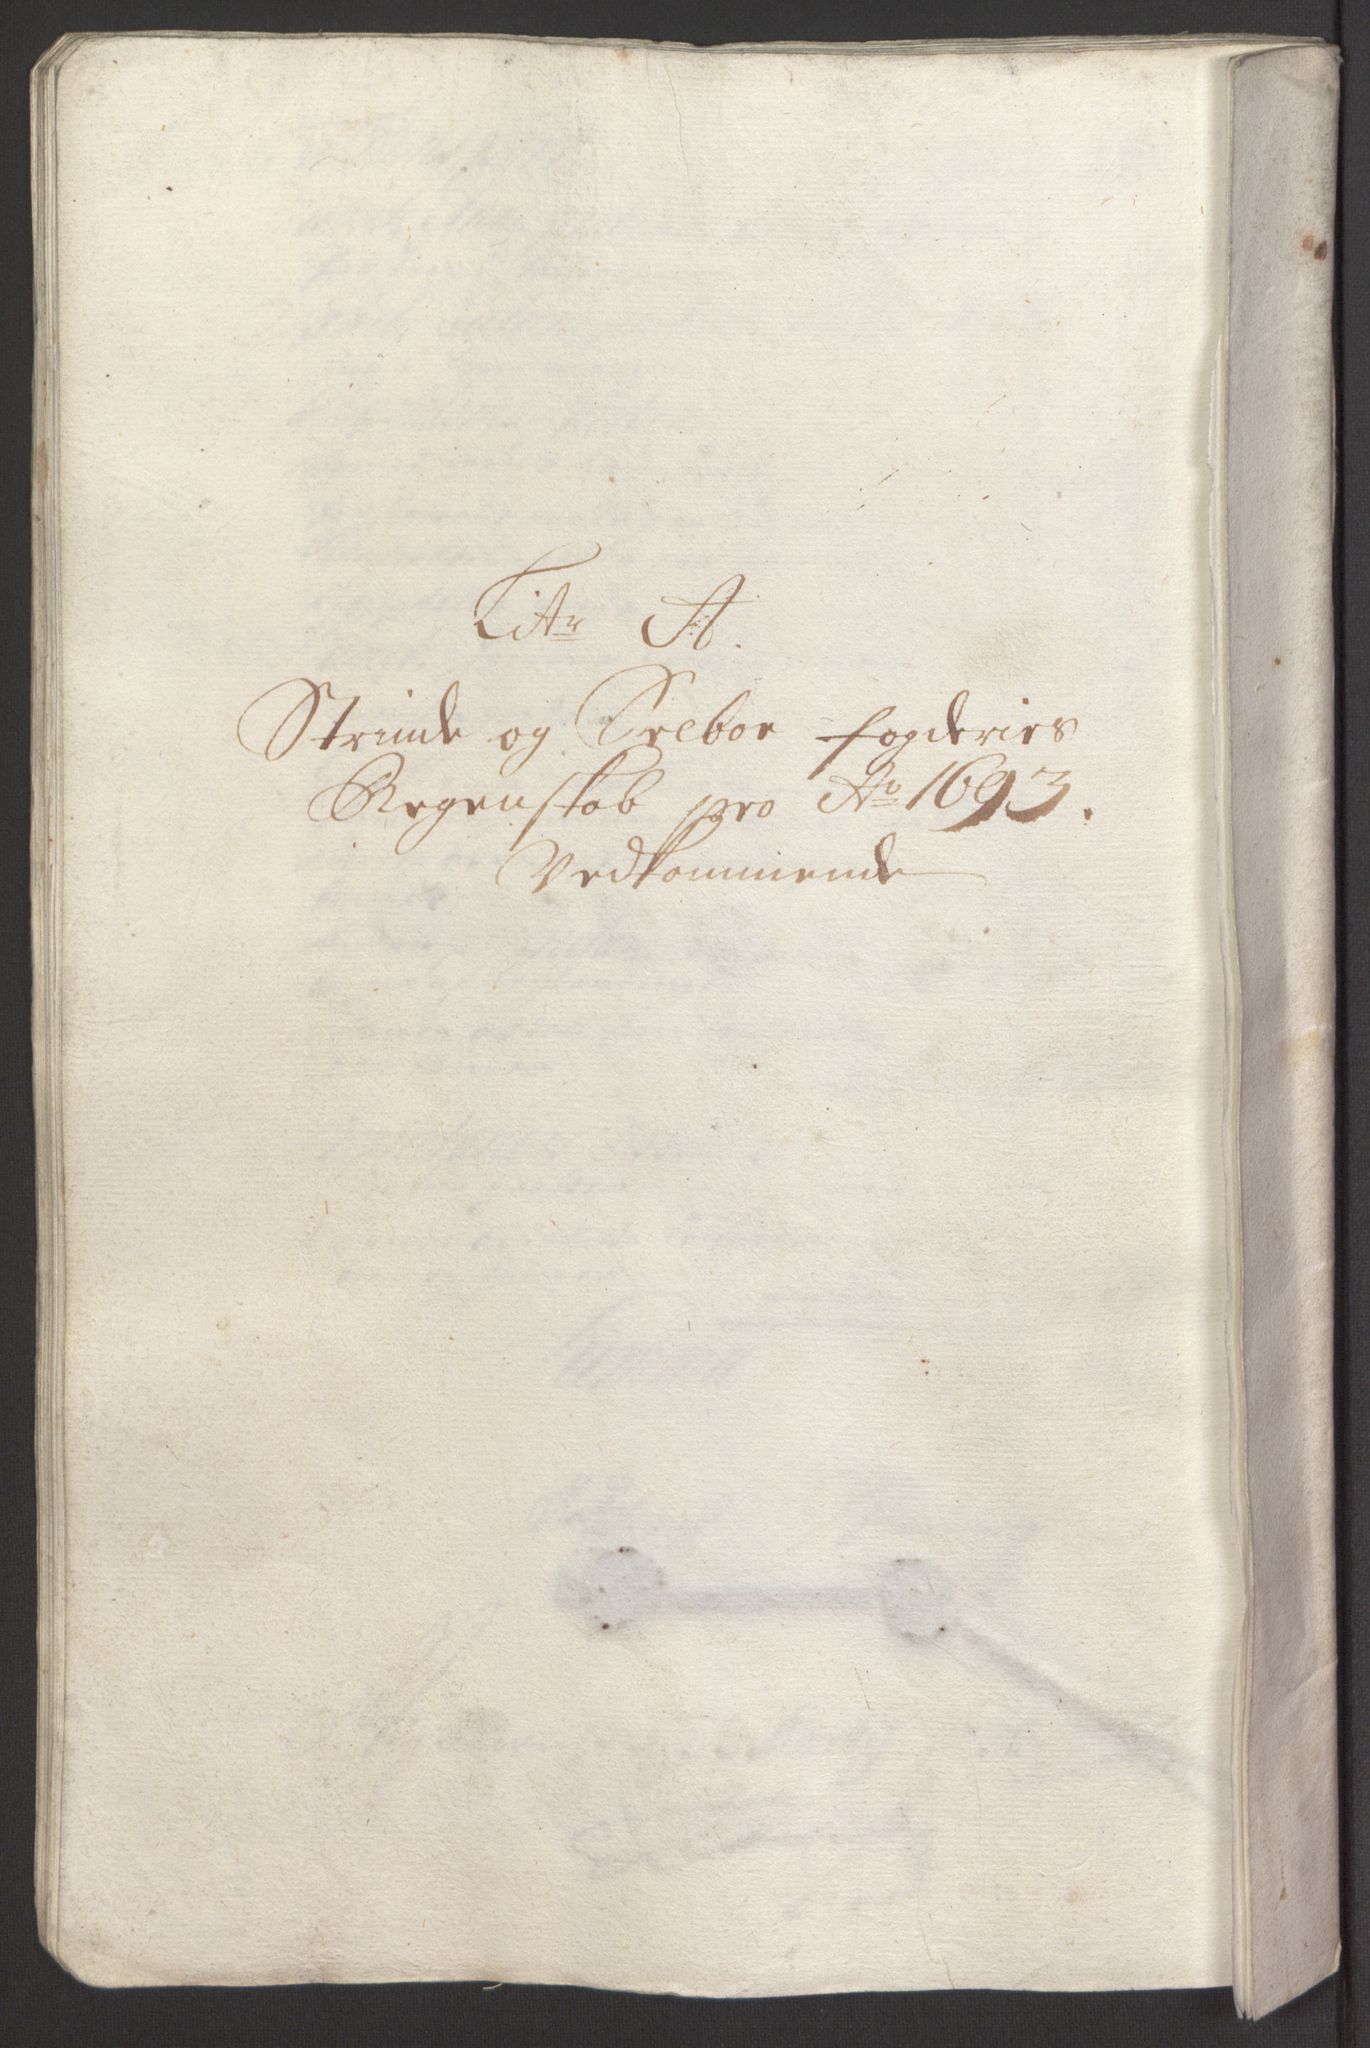 Litr A.
Strinde og Selboe fogderies
Regenskab pro Ao 1693.
Vedkommende